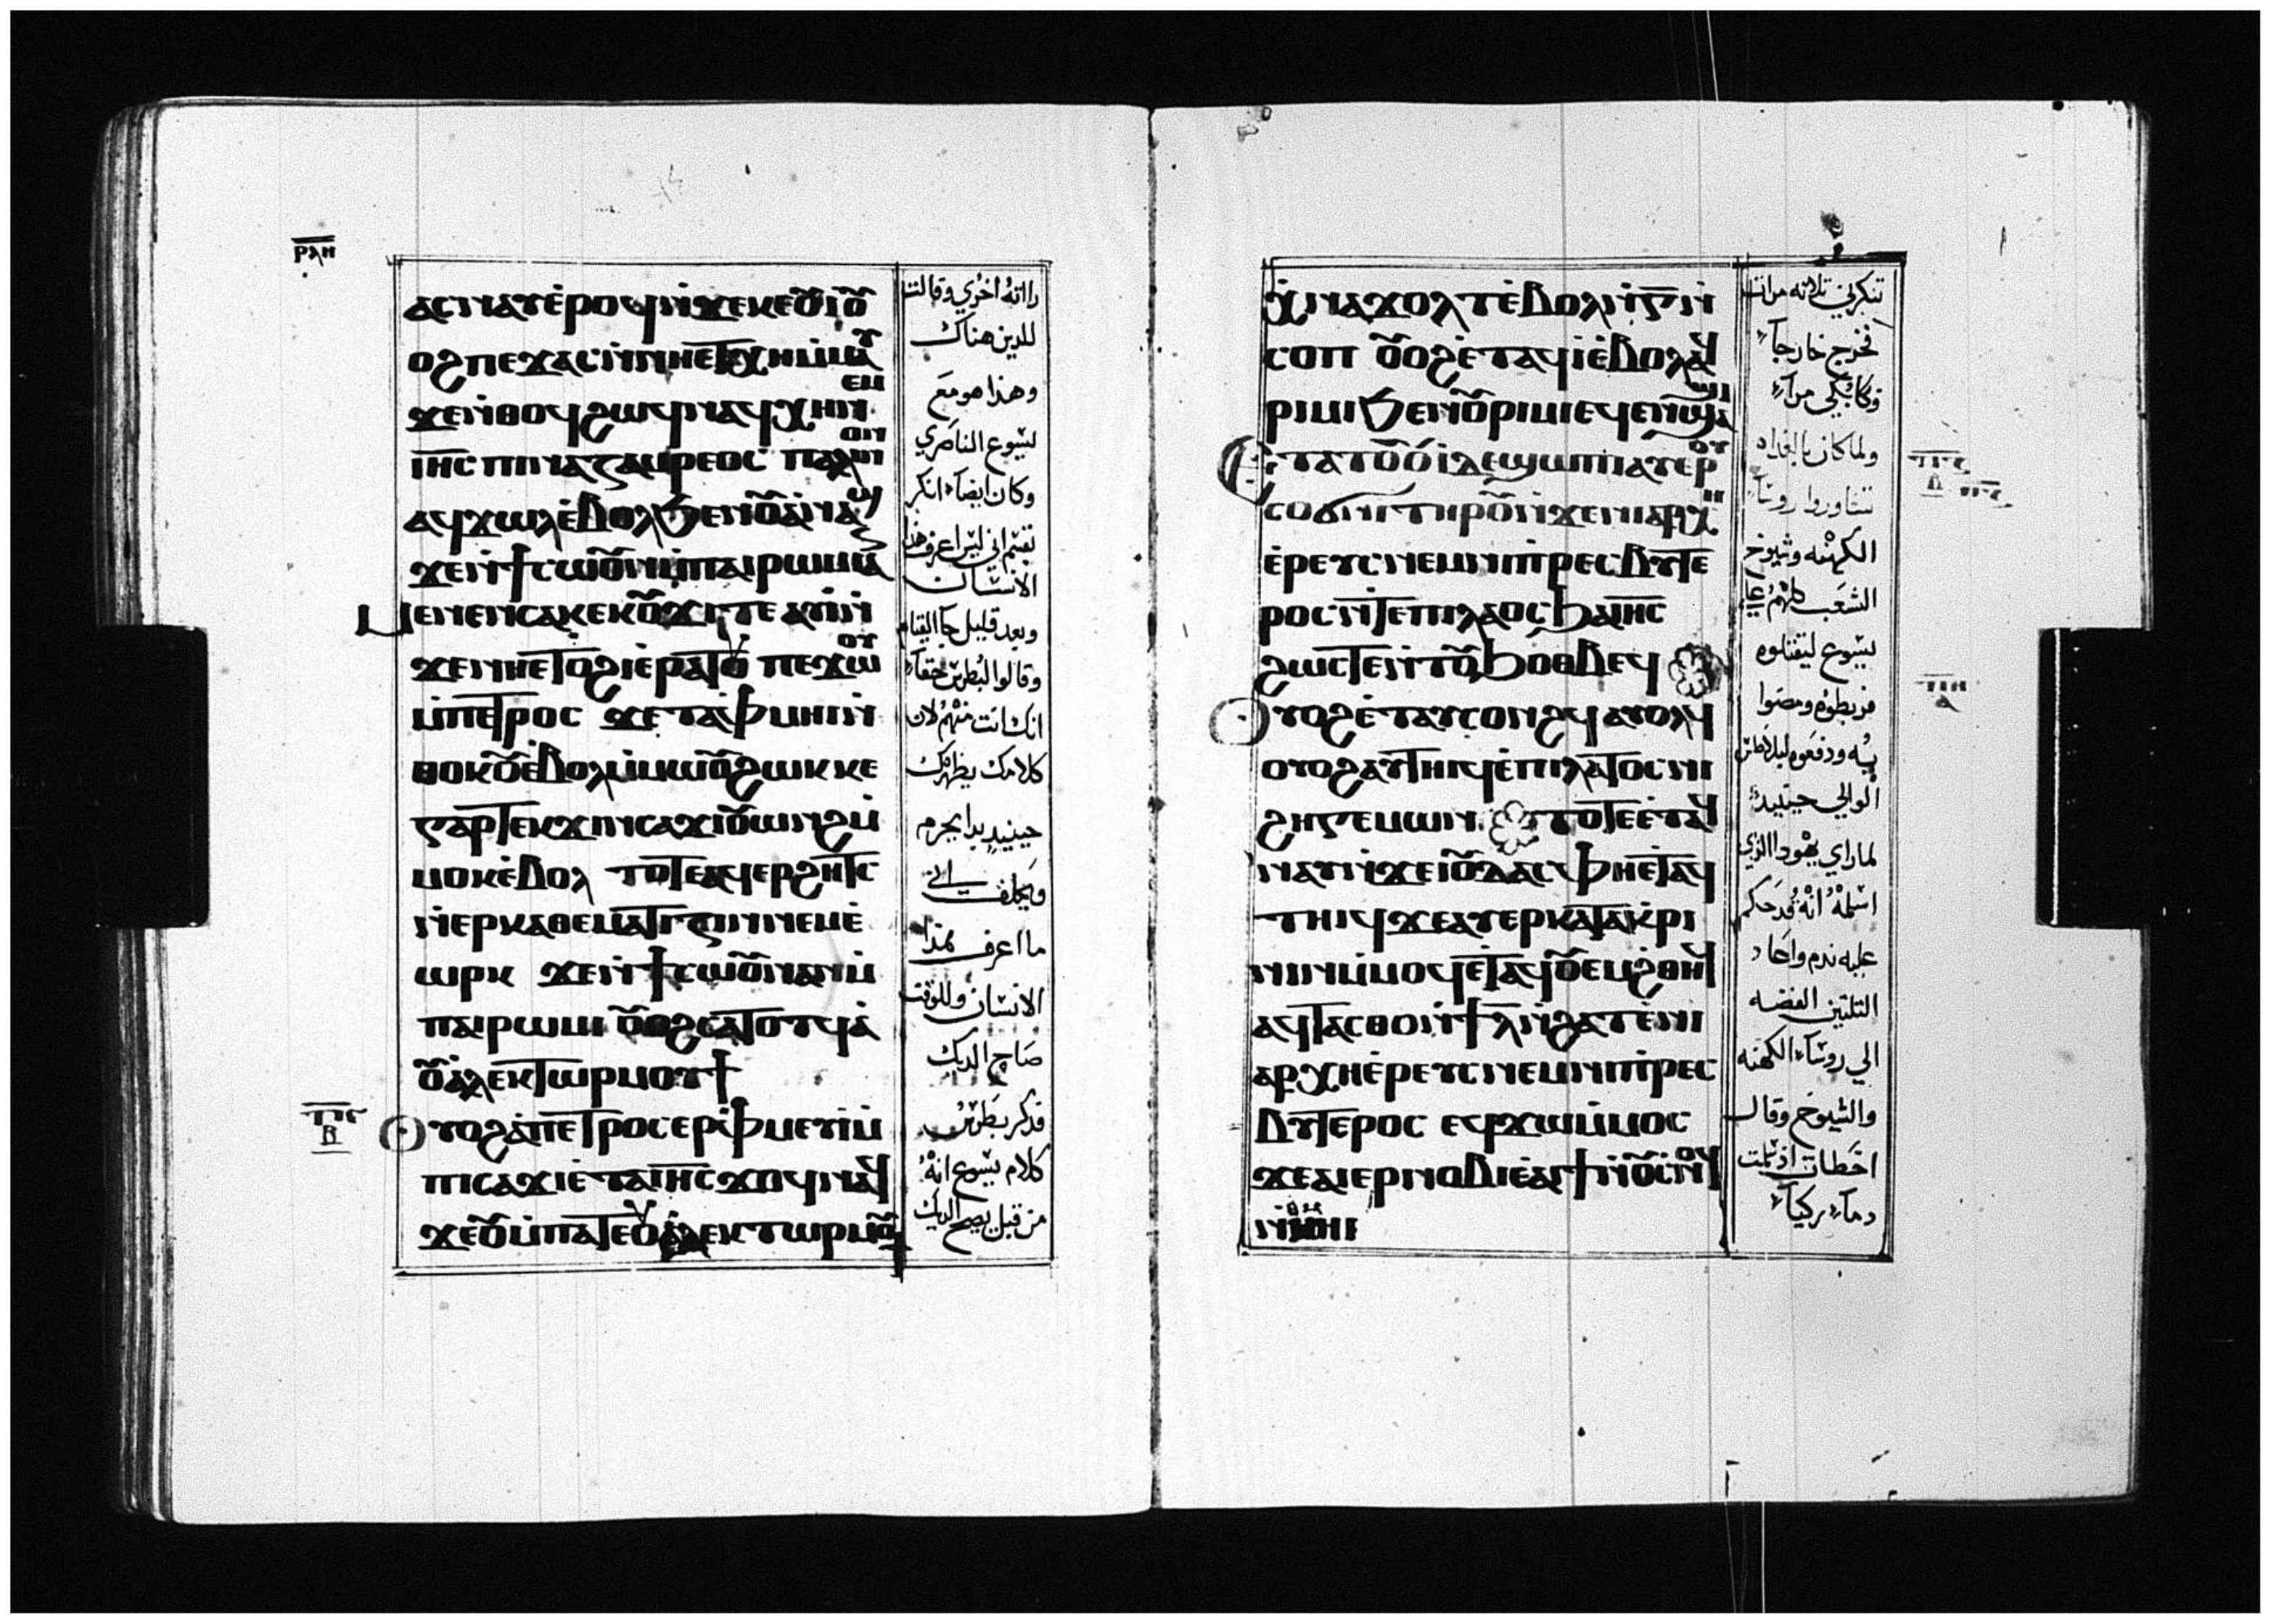 ⲣⲗⲏ
ⲁⲥⲛⲁⲩⲉ̇ⲣⲟϥⲛ̇ϫⲉⲕⲉⲟⲩⲓ̇ⲟⲩ
ⲟϩⲡⲉϫⲁⲥⲛ̇ⲛⲏⲉⲧⲭⲏⲙ̇ⲙⲁⲩ
ϫⲉⲛ̇ⲑⲟϥϩⲱϥⲛⲁϥⲭⲏⲛⲉⲙ
ⲓⲏⲥ ⲡⲓⲛⲁⲍⲱⲣⲉⲟⲥ ⲡⲁⲗⲓⲛⲟⲛ
ⲁϥϫⲱⲗⲉ̇ⲃⲟⲗϧⲉⲛⲟⲩⲁⲛⲁϣ
ϫⲉⲛ̇ϯⲥⲱⲟⲩⲛⲙ̇ⲡⲁⲓⲣⲱⲙⲓⲁⲛ
ⲙⲉⲛⲉⲛⲥⲁⲕⲉⲕⲟⲩϫⲓⲇⲉ ⲁⲩⲓ̇ⲛ̇
ϫⲉⲛⲏⲉⲧⲟϩⲓⲉ̇ⲣⲁⲧⲟⲩ ⲡⲉϫⲱⲟⲩ
ⲙ̇ⲡⲉⲧⲣⲟⲥ ϫⲉ ⲧⲁⲫⲙⲏⲓⲛ̇
ⲑⲟⲕⲟⲩⲉ̇ⲃⲟⲗⲙ̇ⲙⲱⲟⲩϩⲱⲕ ⲕⲉ
ⲅⲁⲣⲧⲉⲕϫⲓⲛⲥⲁϫⲓⲟⲩⲱⲛϩⲙ̇
ⲙⲟⲕⲉ̇ⲃⲟⲗ ⲧⲟⲧⲉⲁϥⲉⲣϩⲏⲧⲥ
ⲛ̇ⲉⲣⲕⲁⲑⲉⲙⲁⲧⲓⲍⲓⲛⲛⲉⲙⲉ̇
ⲱⲣⲕ ϫⲉⲛ̇ϯⲥⲱⲟⲩⲛⲁⲛⲙ̇
ⲡⲁⲓⲣⲱⲙⲓ ⲟⲩⲟϩⲥⲁⲧⲟⲧϥⲁ̇
ⲟⲩⲁ̇ⲗⲉⲕⲧⲱⲣⲙⲟⲩϯ
ⲟⲩⲟϩⲁ̇ⲡⲉⲧⲣⲟⲥⲉⲣⲫⲙⲉⲩⲓ̇ⲙ̇
ⲡⲓⲥⲁϫⲓⲉ̇ⲧⲁⲓⲏⲥϫⲟϥⲛⲁϥ
ϫⲉⲟⲩⲙ̇ⲡⲁⲧⲉⲟⲩⲁ̇ⲗⲉⲕⲧⲱⲣⲙⲟⲩϯ
راته اخري وقالت
للدين هناك
وهذا هو مع
يسوع الناصري
وكان ايضا انكر
بقسم اني ليس اعرف هذا
الانسان
وبعد قليل جا القيام
وقالوا لبطرس حقا
انك انت منهم لان
كلامك يظهرك
حينيد بدا يحرم
ويحلف اني
ما اعرف هذا
الانسان وللوقت
صاح الديك
فدكر بطرس
كلام يسوع انه
من قبل يصيح الديك
ⲭ̇ⲛⲁϫⲟⲗⲧⲉ̇ⲃⲟⲗⲛ̇ⲅⲛ̇
ⲥⲟⲡ ⲟⲩⲟϩⲉ̇ⲧⲁϥⲓ̇ⲉ̇ⲃⲟⲗⲁϥ
ⲣⲓⲙⲓϧⲉⲛⲟⲩⲣⲓⲙⲓⲉϥⲉⲛϣⲁϣⲓ
ⲉⲧⲁⲧⲟⲟⲩⲓ̇ⲇⲉϣⲱⲡⲓⲁⲩⲉⲣⲟⲩ
ⲥⲟϭⲛⲓ ⲧⲏⲣⲟⲩⲛ̇ϫⲉⲛⲓⲁⲣⲭⲏ
ⲉ̇ⲣⲉⲩⲥⲛⲉⲙⲛⲓⲡⲣⲉⲥⲃⲩⲧⲉ
ⲣⲟⲥⲛ̇ⲧⲉⲡⲓⲗⲁⲟⲥϧⲁⲓⲏⲥ
ϩⲱⲥⲧⲉⲛ̇ⲧⲟⲩϧⲟⲑⲃⲉϥ
ⲟⲩⲟϩⲉ̇ⲧⲁⲩⲥⲟⲛϩϥ ⲁⲩⲟⲗϥ
ⲟⲩⲟϩⲁⲩⲧⲏⲓϥⲉ̇ⲡⲓⲗⲁⲧⲟⲥⲡⲓ
ϩⲏⲅⲉⲙⲱⲛ ⲧⲟⲧⲉⲉ̇ⲧⲁϥ
ⲛⲁⲩⲛ̇ϫⲉⲓⲟⲩⲇⲁⲥⲫⲏⲉⲧⲁϥ
ⲧⲏⲓϥϫⲉⲁⲩⲉⲣⲕⲁⲧⲁⲕⲣⲓ
ⲛⲓⲛⲙ̇ⲙⲟϥⲉ̇ⲧⲁϥⲟⲩⲉⲙϩⲑⲏϥ
ⲁϥⲧⲁⲥⲑⲟⲛ̇ϯⲗⲛ̇ϩⲁⲧⲉ̇ⲛⲓ
ⲁⲣⲭⲏⲉ̇ⲣⲉⲩⲥⲛⲉⲙⲛⲓⲡⲣⲉⲥ
ⲃⲩⲧⲉⲣⲟⲥ ⲉϥϫⲱⲙ̇ⲙⲟⲥ
ϫⲉⲁⲓⲉⲣⲛⲟⲃⲓⲉ̇ⲁⲓϯⲛ̇ⲟⲩⲥⲛⲟϥ
ⲛ̇ⲑⲙⲏⲓ
تنكرني تلاته مرات
فخرج خارجا
وكا يبكي مرا
ولما كان بالغداه
تشاوروا روسا
الكهنه وشيوخ
الشعب كلهم علي
يسوع ليقتلوه
فربطوه ومضوا
به ودفعوه لبيلاطس
الوالي حينيد
لما راي يهودا الذي
اسلمه انه قد حكم
عليه ندم واعاد
التلتين الفضه
الي روسا الكهنه
والشيوخ وقال
اخطات اذ سلمت
دما زكيا